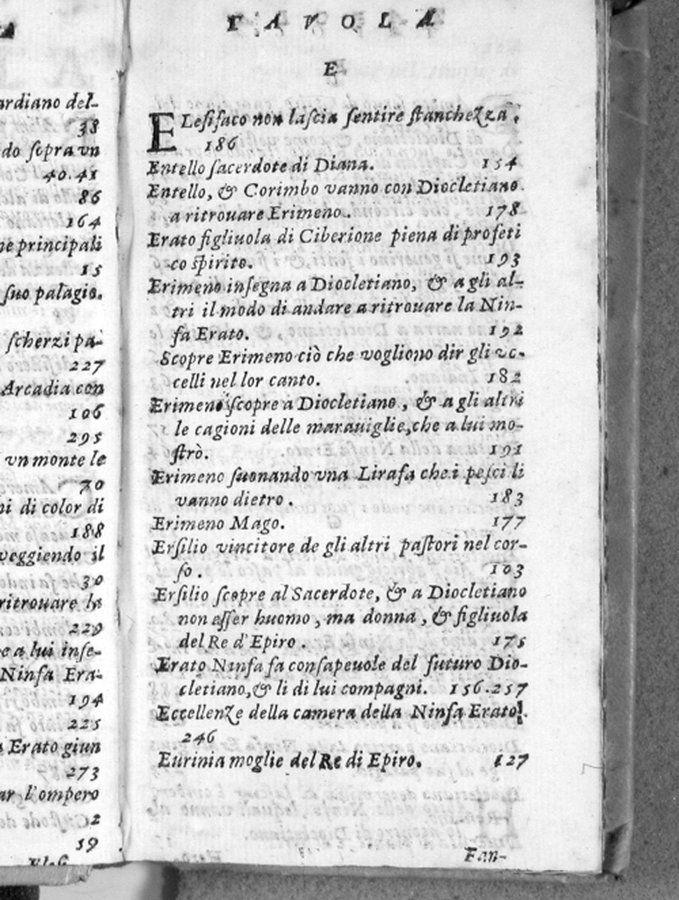 ardiano del-
38
do sopra vn
40.41
86
164
ne principali
15
suo palagio.
scherzi pa-
227
Arcadia con
106
295
vn monte le
70
ni di color di
188
veggiendo il
30
ritrouare la
229
e a lui inse-
Ninfa Era-
194
225
a Erato giun
273
ar l'ompero
2
19
TAVOLA
E
ELesifaco non lascia sentire stanchezza.
186
Entello sacerdote di Diana. 154
Entello, & Corimbo vanno con Diocletiano
a ritrouare Erimeno. 178
Erato figliuola di Ciberione piena di profeti
co spirito. 193
Erimeno insegna a Diocletiano, & a gli al-
tri il modo di andare a ritrouare la Nin-
fa Erato. 192
Scopre Erimeno ciò che vogliono dir gli vc-
celli nel lor canto. 182
Erimeno scopre a Diocletiano, & a gli altri
le cagioni delle marauiglie, che a lui mo-
strò. 191
Erimeno suonando vna Lira fa che i pesci li
vanno dietro. 183
Erimeno Mago. 177
Ersilio vincitore de gli altri pastori nel cor-
so. 103
Ersilio scopre al Sacerdote, & a Diocletiano
non esser huomo, ma donna, & figliuola
del Re d'Epiro. 175
Erato Ninfa fa consapeuole del futuro Dio-
cletiano, & li di lui compagni. 156.257
Eccellenze della camera della Ninfa Erato.
246
Eurinia moglie del Re di Epiro. 127
Fan-